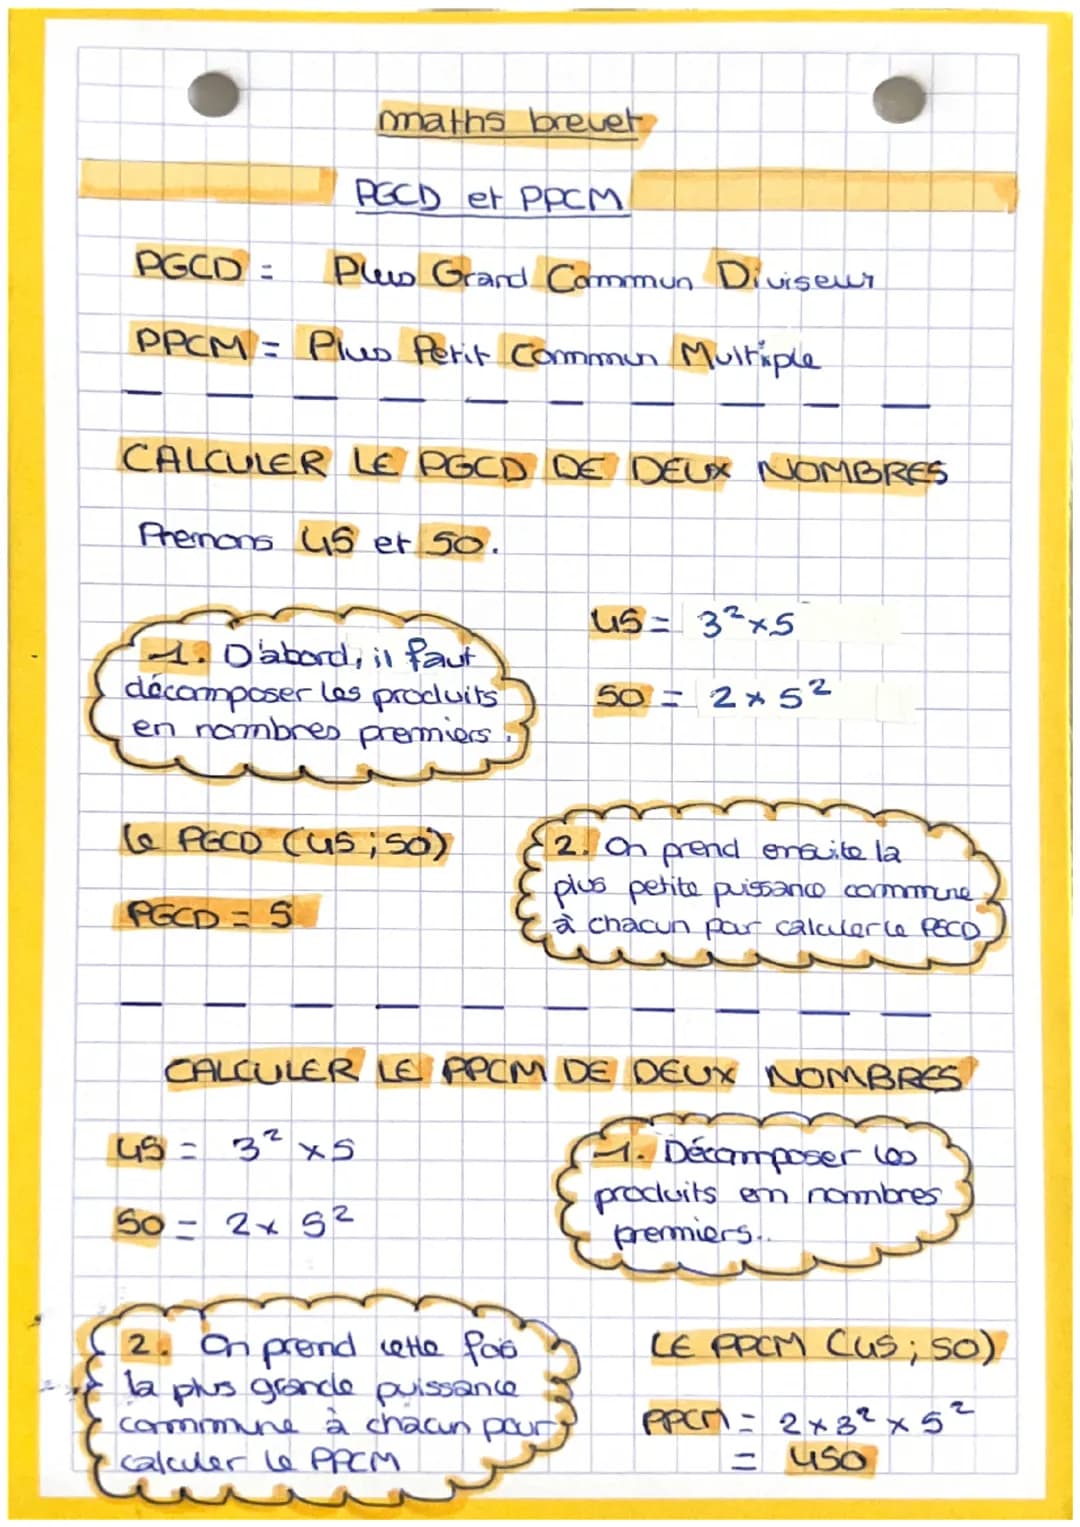 maths brevet
PGCD et PPCM
PGCD = Plus Grand Commun Diviseur
PPCM = Plus Petit Commun Multiple
CALCULER LE PGCD DE DEUX NOMBRES
Prenons 45 et 50.
45 = 3² x 5
1. D'abord, il faut
décomposer les produits
en nombres premiers.
50 = 2 x 5²
le PGCD (45 ; 50)
PGCD = 5
2. On prend ensuite la
plus petite puissance commune
à chacun pour calculer le PGCD
CALCULER LE PPCM DE DEUX NOMBRES
45 = 3² x 5
50 = 2 x 5²
1. Décomposer les
produits en nombres
premiers..
2. On prend cette fois
la plus grande puissance
commune à chacun pour
calculer le PPCM
LE PPCM (45 ; 50)
PPCM = 2 x 3² x 5²
= 450